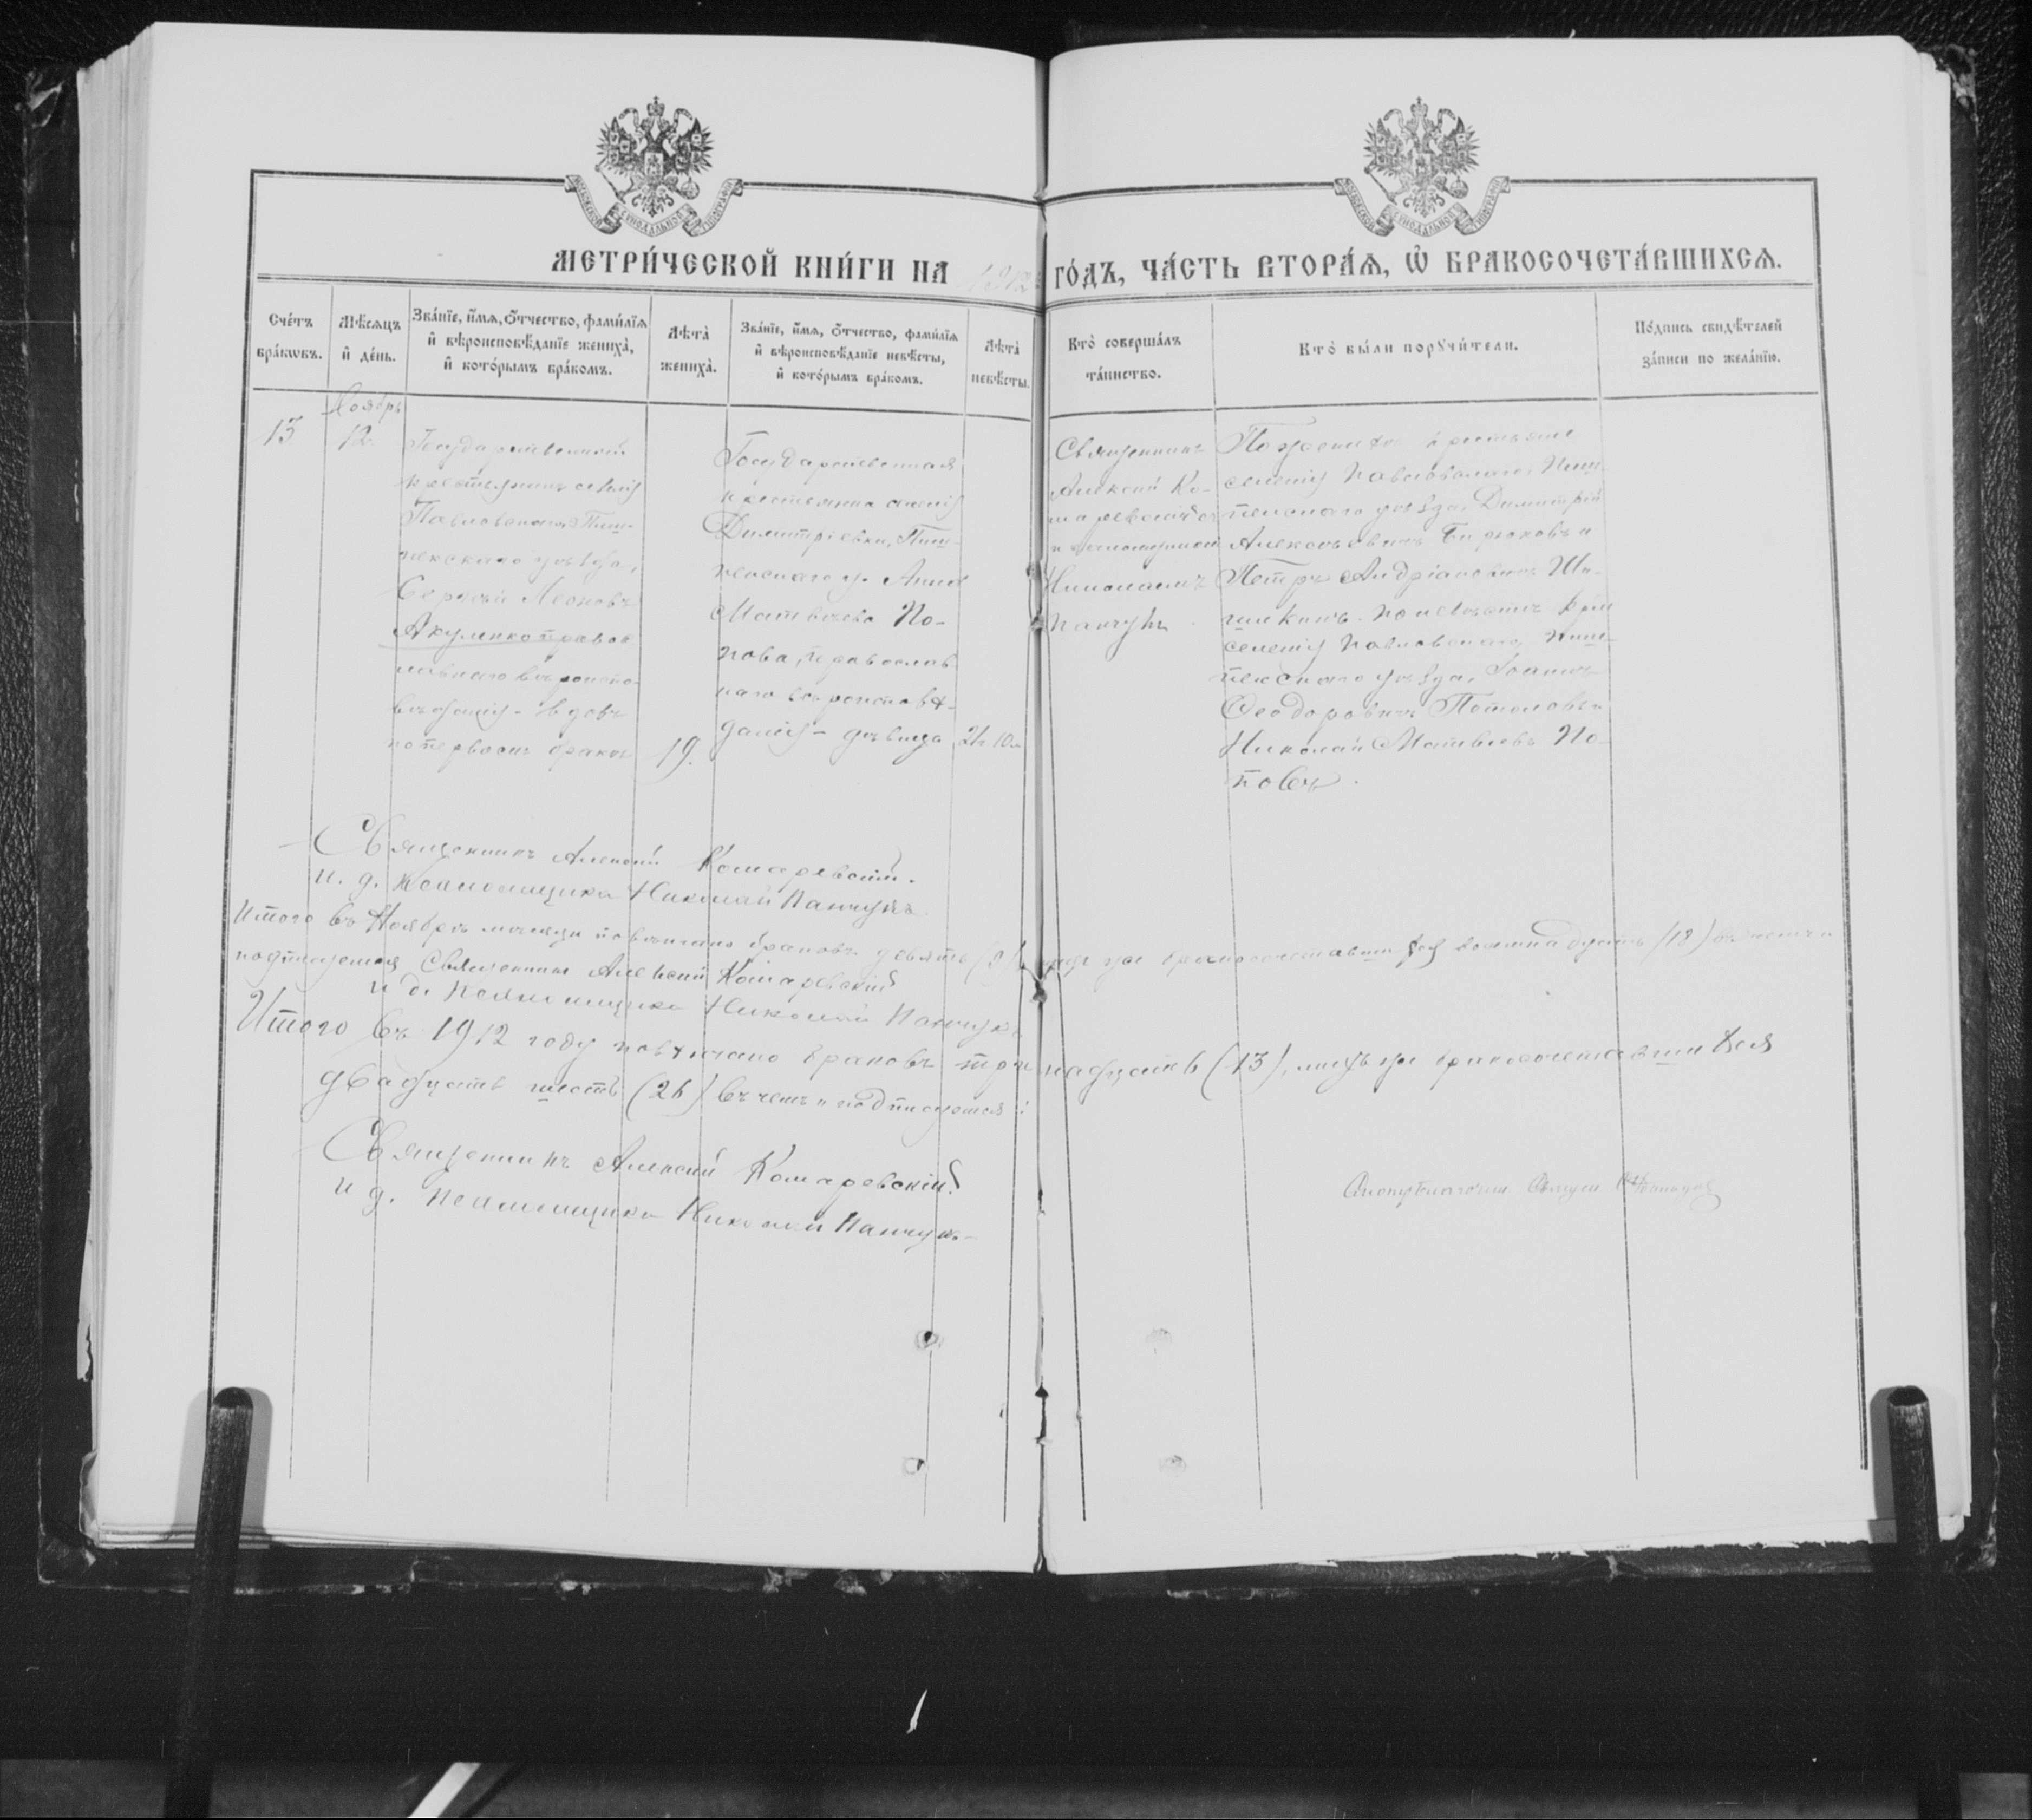 МОСКОВСКОЙ СѴНОДАЛЬНОЙ ТИПОГРАФІИ
МОСКОВСКОЙ СѴНОДАЛЬНОЙ ТИПОГРАФІИ
МЕТРИ́ЧЕСКОЙ КНИ́ГИ НА 1912 ГО́ДЪ, ЧА́СТЬ ВТОРА́Ѧ, Ѽ БРАКОСОЧЕТА́ВШИХСѦ.
Сче́тъ
бра́кѡвъ.
Мѣ́сѧцъ
и҆ де́нь.
Зва́нїе, и҆́мѧ, ѻ҆́тчество, фами́лїѧ
и҆ вѣроисповѣ́данїе жениха̀,
и҆ кото́рымъ бра́комъ.
Лѣта̀
жениха̀.
Зва́нїе, и҆́мѧ, ѻ҆́тчество, фами́лїѧ
и҆ вѣроисповѣ́данїе невѣ́сты,
и҆ кото́рымъ бра́комъ.
Лѣта̀
невѣ́сты.
Кто̀ соверша́лъ
та́инство.
Кто̀ бы́ли порꙋчи́тели.
По́дпись свидѣ́телей
за́писи по жела́нїю.
13
Ноябрь
12.
Государственный
крестьянинъ селенія
Павловскаго, Пиш-
пекскаго уѣзда,
Сергѣй Леоновъ
Акуленко православ
наго вѣроиспо-
вѣданія - вдовъ
по первомъ бракѣ
19.
Государственная
крестьянка селенія
Димитріевки, Пиш-
пекскаго у. Анна
Матвѣева По-
пова, православ-
наго вѣроисповѣ-
данія - дѣвица
Священникъ
Алексій Ко-
маревскій съ
и. д. псаломщика
Николаемъ
Панчукъ.
По женихѣ крестьяне
селенія Павловскаго, Пиш-
пекскаго уѣзда, Димитрій
Алексѣевичъ Бирюковъ и
Петръ Андріановичъ
по невѣстѣ кре
селенія Павловскаго, Пиш-
пекскаго уѣзда, Іоаннъ
Ѳеодоровичъ Потоловъ и
Николай Матвѣевъ По-
повъ.
Священникъ Алексій Комаревскій.
И. д. псаломщика Николай Панчукъ
Итого въ Ноябрѣ мѣсяцѣ повѣнчано браковъ девять (9), лицъ же бракосочетавшихся восемнадцать (18) въ чемъ и
подписуемся Священникъ Алексій Комаревскій
и д. псаломщика Николай Панчукъ
Итого въ 1912 году повѣнчано браковъ тринадцать (13), лицъ же бракосочетавшихся
двадцать шесть (26) въ чемъ и подписуемся:
Священникъ Алексій Комаревскій.
и д. псаломщика Николай Панчукъ.